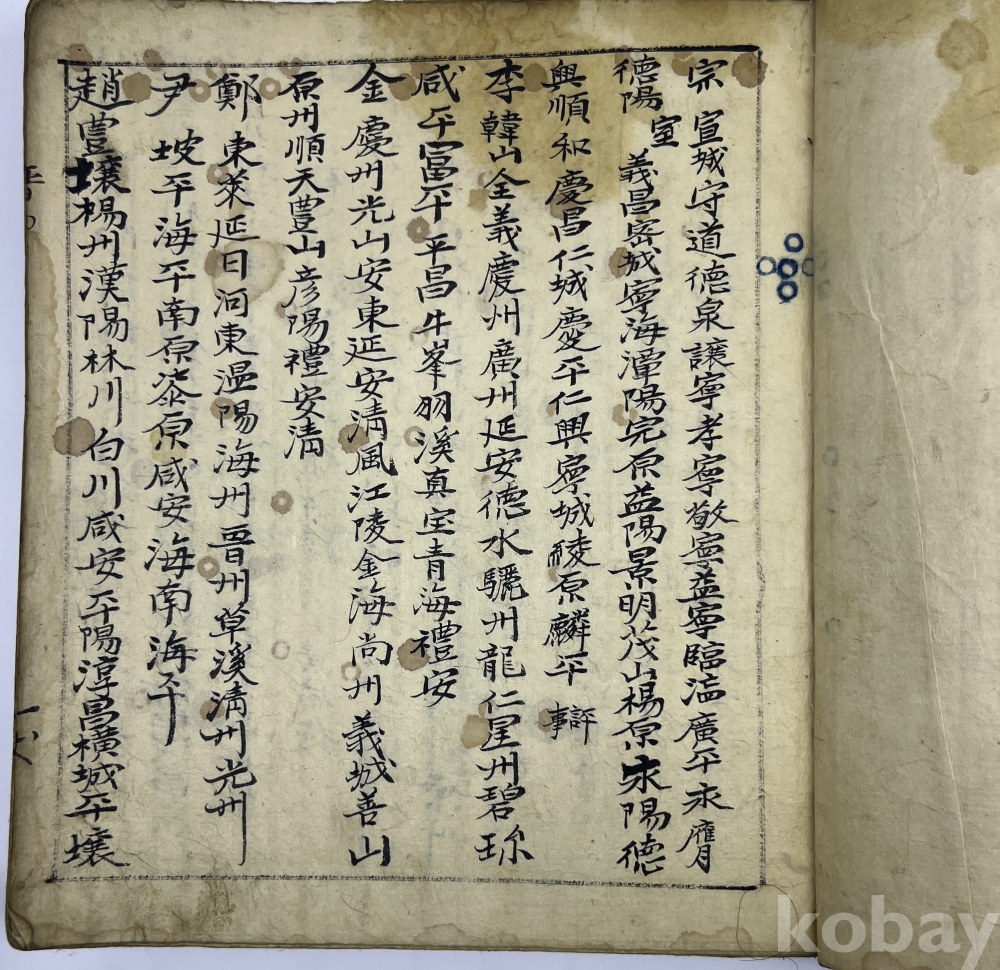 宗 宣城守道德泉讓寧孝寧敬寧益寧臨瀛廣平永膺
德陽
室 義昌密城寧海潭陽完原益陽景明茂山楊原永陽德
興順和慶昌仁城慶平仁興寧城綾原麟平 評事
李 韓山全義慶州廣州延安德水驪州龍仁星州碧珎
咸平富平平昌牛峯羽溪真宝青海禮安
金慶州光山安東延安淸風江陵金海尚州義城善山
原州順天豊山彦陽禮安淸
鄭 東萊延日河東温陽海州晉州草溪淸州光州
尹 坡平海平南原茶原咸安海南海平
趙豊壤楊州漢陽林川白川咸安平陽淳昌橫城平壤
kobay